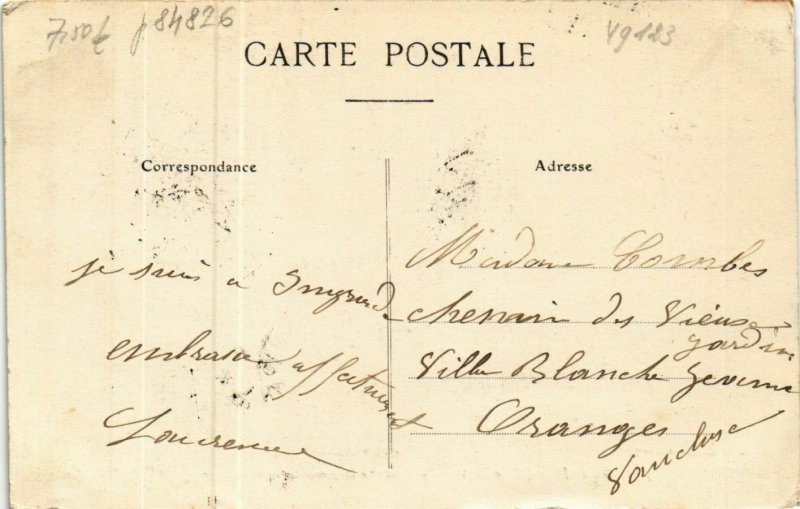 7,50f p84826
Vg123
CARTE POSTALE
Correspondance
Adresse
je suis a
embrasse affectueusement
Laurence
Madame Combes
chemain des Vieus
jardin
Villa Blanche
Oranges
Vaucluse